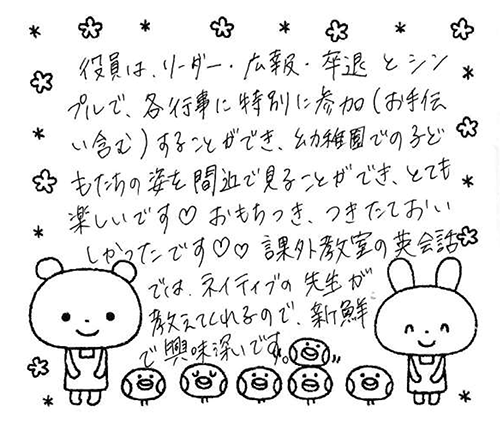 役員は、リーダー・広報・卒退とシン
プルで、各行事に特別に参加(お手伝
い含む)することができ、幼稚園での子ど
もたちの姿を間近で見ることができ、とても
楽しいです♡ おもちつき、つきたておい
しかったです♡♡ 課外教室の英会話
では、ネイティブの先生が
教えてくれるので、新鮮
で興味深いです。